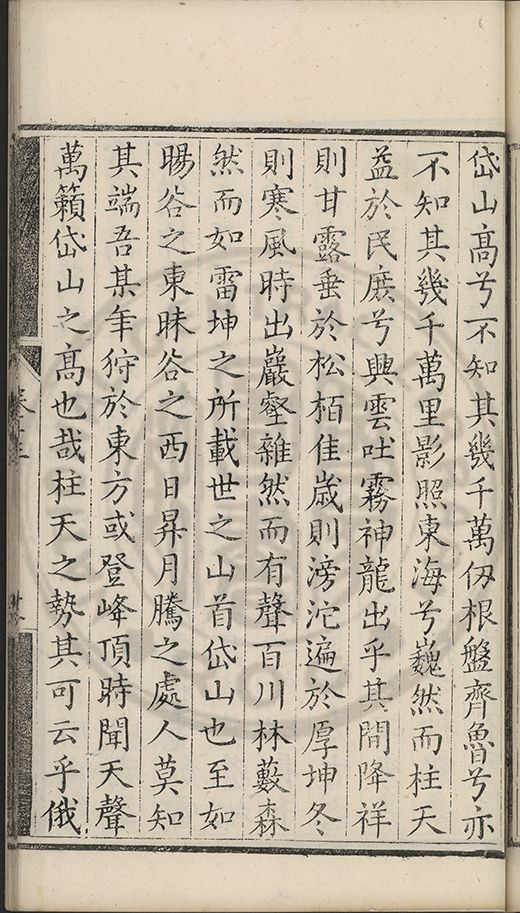 岱山髙兮不知其幾千萬仭根盤齊魯兮亦
不知其幾千萬里影照東海兮巍然而柱天
益於民庶兮興雲吐霧神龍出乎其間降祥
則甘露垂於松栢佳歲則滂沱遍於厚坤冬
則寒風時出巖壑雜然而有聲百川林藪森
然而如雷坤之所載世之山首岱山也至如
暘谷之東昧谷之西日昇月騰之處人莫知
其端吾某年狩於東方或登峰頂時聞天聲
萬籟岱山之髙也哉柱天之勢其可云乎俄